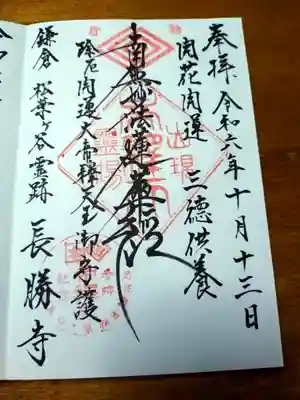 奉拝 令和六年十月十三日
開花開運 三徳供養
南無妙法蓮華経
除厄開運大帝釈天王御守護
鎌倉 松葉ヶ谷霊跡 長勝寺
出現